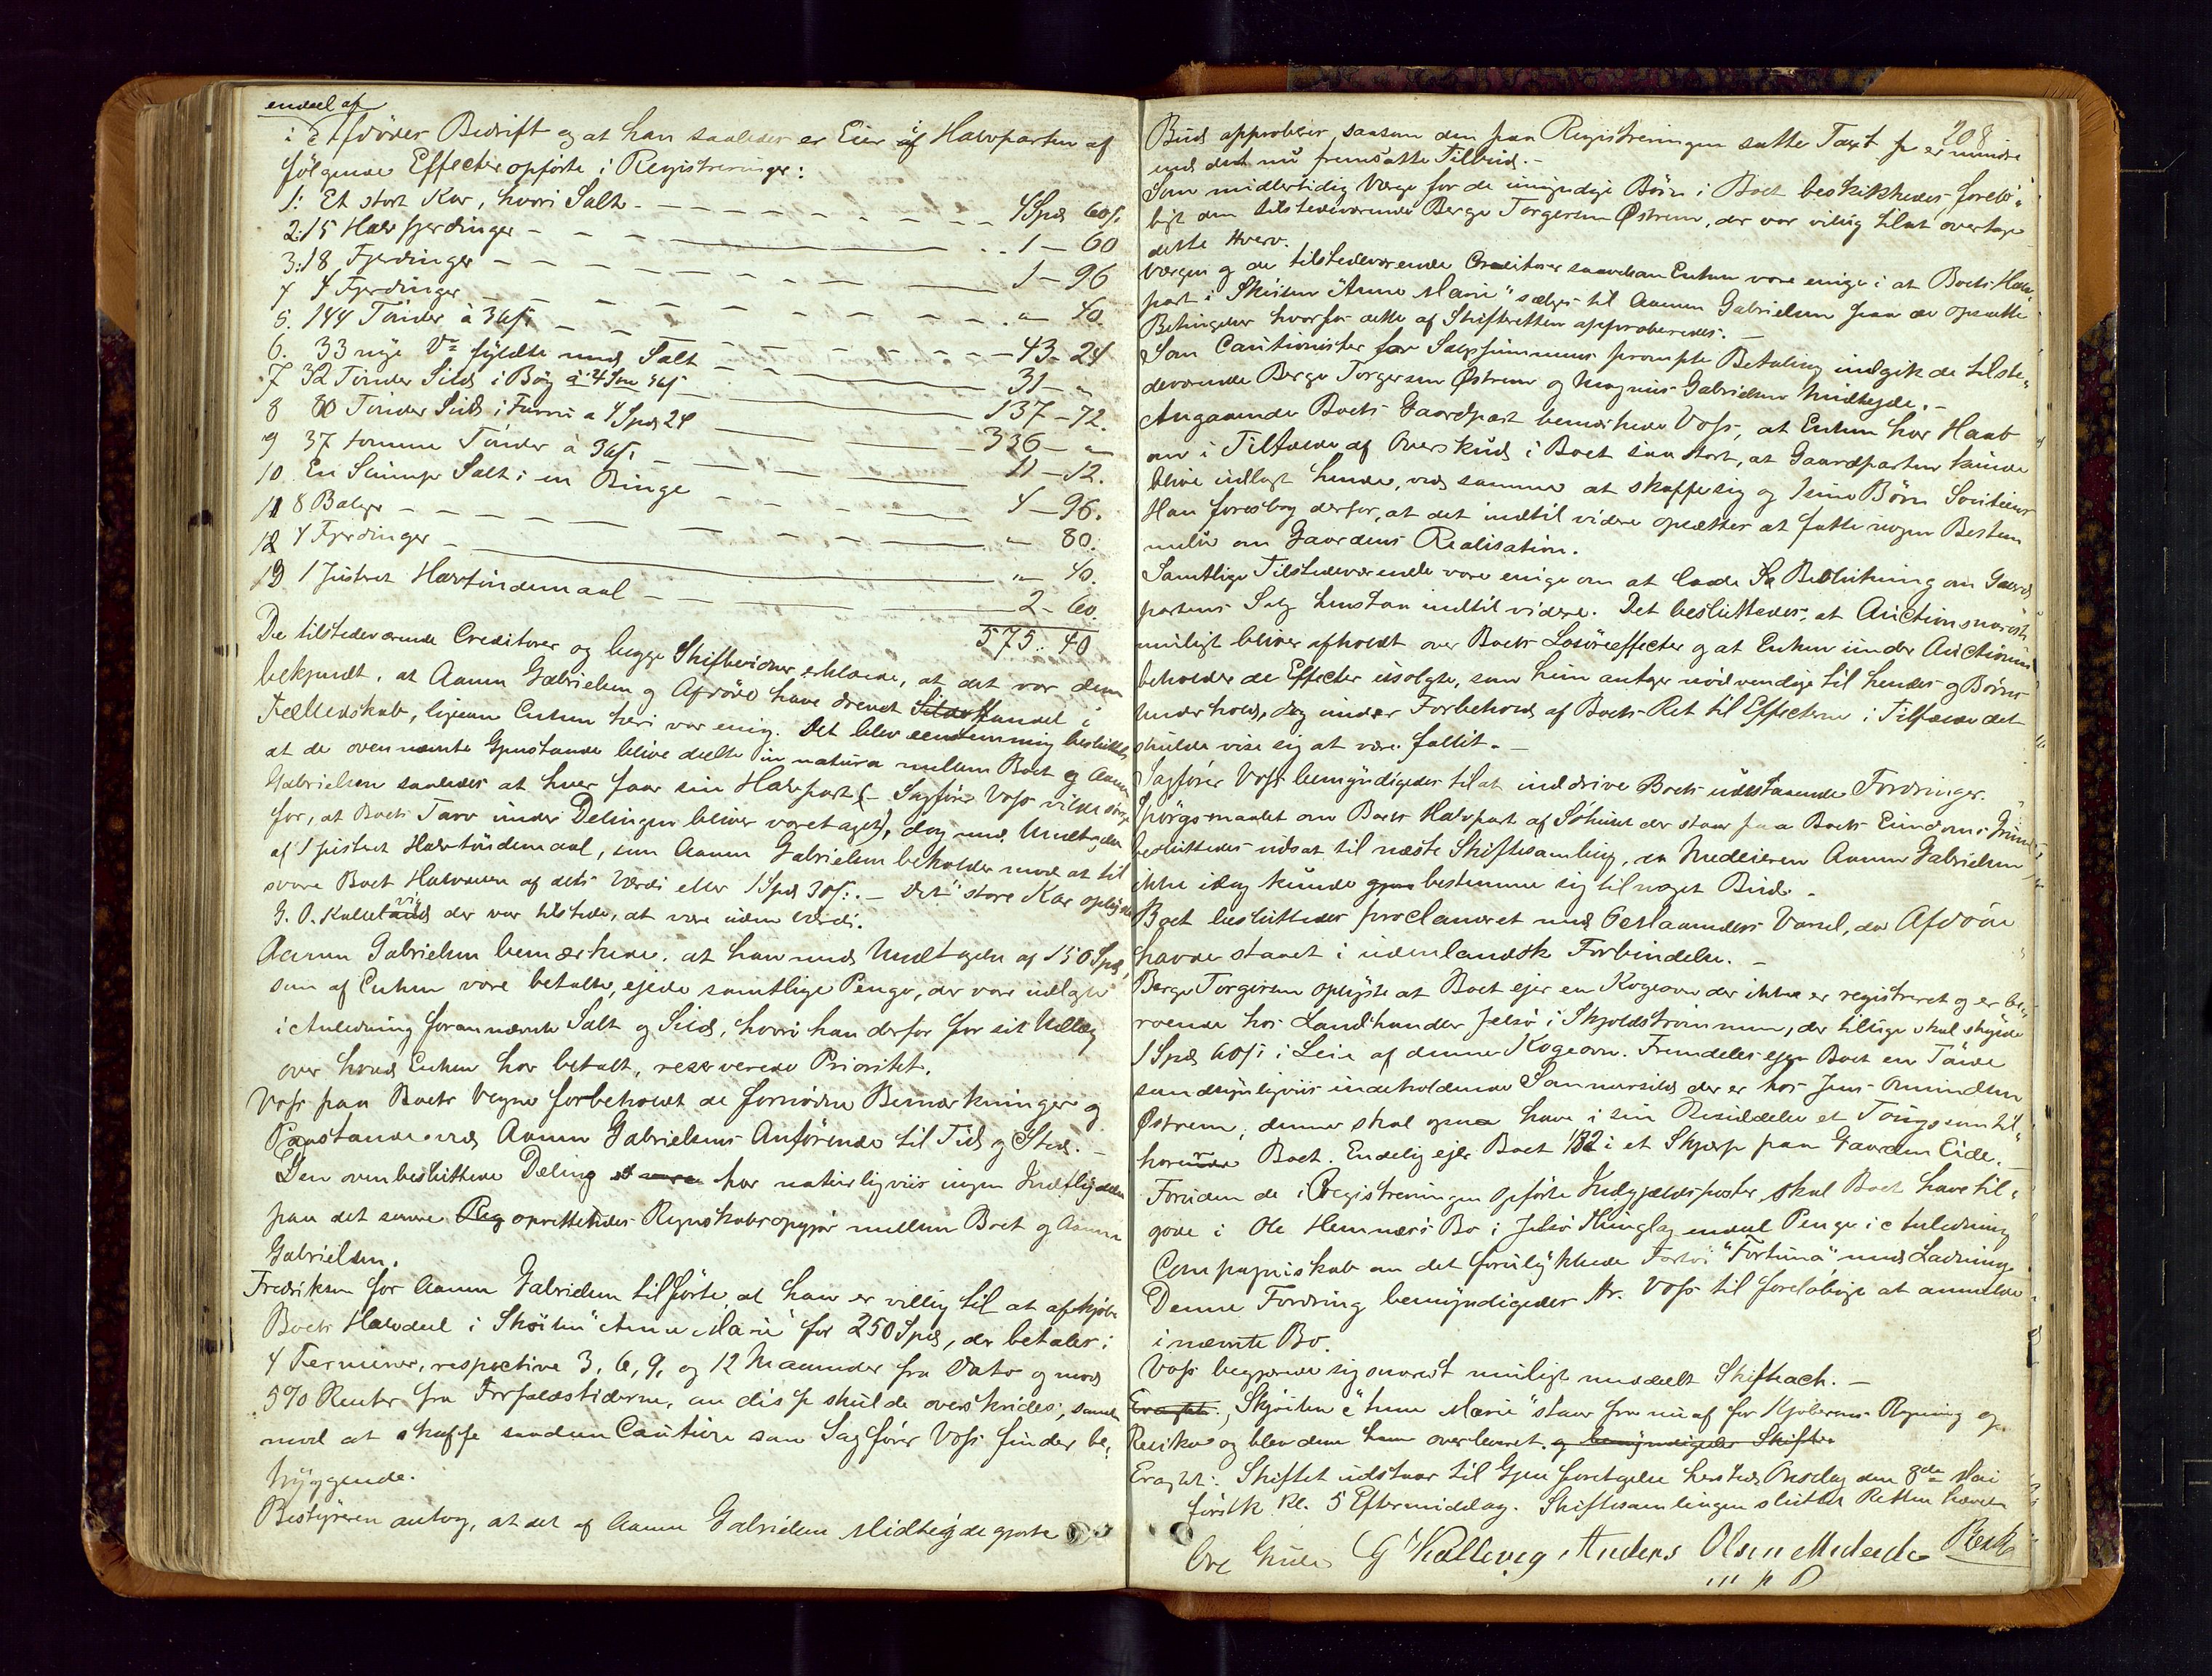 endeel af
i Afdødes Bedrift og at han saaledes er Eier af Halvparten af
følgende Effecter opførte i Registreringen:
1: Et stort Kar, hvori Salt - 4 Spd 60 s.
2: 15 Halvfjerdinger - 1 - 60
3: 18 Fjerdinger - 1 - 96
4 4 Fjerdinger - " - 40.
5. 144 Tønder à 36 s. - 43 - 24
6. 33 nye Do fyldte med Salt - 31 - "
7 32 Tønder Sild i Bøg à 4 Spd 36 s - 137 - 72.
8 80 Tønder Sild i Furu a 4 Spd 24 - 336 - "
9 37 tomme Tønder à 36 s. - 11 - 12.
10. En Slump Salt i en Binge - 4 - 96.
11 8 Baljer - " - 80.
12 4 Fjerdinger - " - 40.
13 1 Justeret Halvtøndemaal - 2 - 60.
575. 40
De tilstedeværende Creditorer og begge Skiftevidner erklærede, at det var dem
bekjendt, at Aamun Gabrielsen og Afdøde have drevet Sildehandel i
Fælledskab, ligesom Enken heri var enig. Det blev eenstemmig besluttet
at de ovennævnte Gjenstande blive deelte in natura mellem Boet og Aamun
Gabrielsen saaledes at hver faar sin Halvpart (- Sagfører Voss vilde sørge
for, at Boets Tarv under Delingen bliver varetaget), dog med Undtagelse
af 1 justeret Halvtøndemaal, som Aamun Gabrielsen beholder mod at til
svare Boet Halvdelen af dets Værdi eller 1 Spd 30 s. - Det store Kar oplyste
G. O. Kallevig der var tilstede, at være uden Værdi.
Aamun Gabrielsen bemærkede, at han med Undtagelse af 150 Spd,
som af Enken vare betalte, ejede samtlige Penge, der var udlagte
i Anledning forannævnte Salt og Sild, hvori han derfor for sit Udlæg
over hvad Enken har betalt, reserverede Prioritet.
Voss paa Boets Vegne forbeholdt de fornødne Bemærkninger og
Paastande ved Aamun Gabrielsens Anførende til Tid og Sted. -
Den ovenbesluttede Deling har naturligviis ingen Indflydelse
paa det senere oprettendes Regnskabsopgjør mellem Boet og Aamun
Gabrielsen.
Fredriksen for Aamun Gabrielsen tilførte, at han er villig til at afkjøbe
Boets Halvdeel i Skøiten "Anne Marie" for 250 Spd, der betales i
4 Terminer, respective 3, 6, 9, og 12 Maaneder fra Dato og mod
5% Renter fra Forfaldstiderne, om disse skulde overskrides, samt
mod at skaffe saadan Caution som Sagfører Voss finder be-
tryggende.
Bestyreren antog, at det af Aamun Gabrielsen Midthejde gjorte
208
Bud approberes, saasom den paa Registreringen satte Taxt er mindre
end det nu fremsatte Tilbud. -
Som midlertidig Værge for de umyndige Børn i Boet beskikkedes foreløb-
igt den tilstedeværende Berge Torgersen Østrem, der var villig til at overtage
dette Hverv.
Værgen og de tilstedeværende Creditorer saavelsom Enken vare enige i at Boets Halv-
part i Skøiten "Anne Marie" sælges til Aamun Gabrielsen paa de opsatte
Betingelser hvorfor dette af Skifteretten approberedes. -
Som Cautionister for Salgssummens prompte Betaling indgik de tilste-
deværende Berge Torgersen Østrem og Magnus Gabrielsen Midthejde. -
Angaaende Boets Gaardpart bemærkede Voss, at Enken har Haab
om i Tilfælde af Overskud i Boet saa stort, at Gaardparten kunde
blive udlagt hende, ved samme at skaffe sig og sine Børn
Han foreslog derfor, at det indtil videre opsættes at fatte nogen Bestem
melse om Gaardens Realisation.
Samtlige Tilstedeværende vare enige om at lade Beslutning om Gaard
partens Salg henstaa indtil videre. Det besluttedes, at Auction snarest
muligt bliver afholdt over Boets Løsøreeffecter og at Enken under Auctionen
beholder de Effecter usolgte, som hun antager nødvendige til hendes og Børns
Underhold, dog under Forbehold af Boets Ret til Effecterne i Tilfælde det
skulde vise sig at være fallit. -
Sagfører Voss bemyndigedes til at inddrive Boets udestaaende Fordringer.
Spørgsmaalet om Boets Halvpart af Søhuset der staar paa Boets Eiendoms Grund
besluttedes udsat til næste Skiftesamling, da Medeieren Aamun Gabrielsen
ikke idag kunde bestemme sig til noget Bud.
Boet besluttedes proclameret med 6 Maaneders Varsel, da Afdøde
havde staaet i udenlandsk Forbindelse. -
Berge Torgersen oplyste at Boet ejer en Kogeovn der ikke er registreret og er be-
roende hos Landhandler Jelsø i Skjoldstrømmen, der tillige skal skylde
1 Spd 60 s i Leie af denne Kogeovn. Fremdeles ejer Boet en Tønde
sandsynligviis indeholdende Sommersild der er hos Jens Omundsen
Østrem, denne skal ogsaa have i sin Besiddelse et Toug som til-
hører Boet. Endelig ejer Boet 1/32 i et Skjerp paa Gaarden Eide. -
Foruden de i Registreringen opførte Indgjældsposter, skal Boet have til-
gode i Ole Hemnæs's Bo i Jelsø Thinglag endeel Penge i Anledning
Compagniskab om det forulykkede Fartøi "Fortuna" med Ladning.
Denne Fordring bemyndigedes Hr. Voss til foreløbige at anmelde
i nævnte Bo.
Voss begjærede sig snarest muligt meddeelt Skifteact. -
Eragtet: Skjøiten "Anne Marie" staar fra nu af for Kjøberens Regning og
Risiko og blev dem overleveret. og bemyndigedes Skifte
Eragtet: Skiftet udstaar til Gjenforetagelse hersteds Onsdag den 8de Mai
førstk Kl. 5 Eftermiddag. Skiftesamlingen sluttet Retten hævet.
Ove G Kallevig Anders Olsen